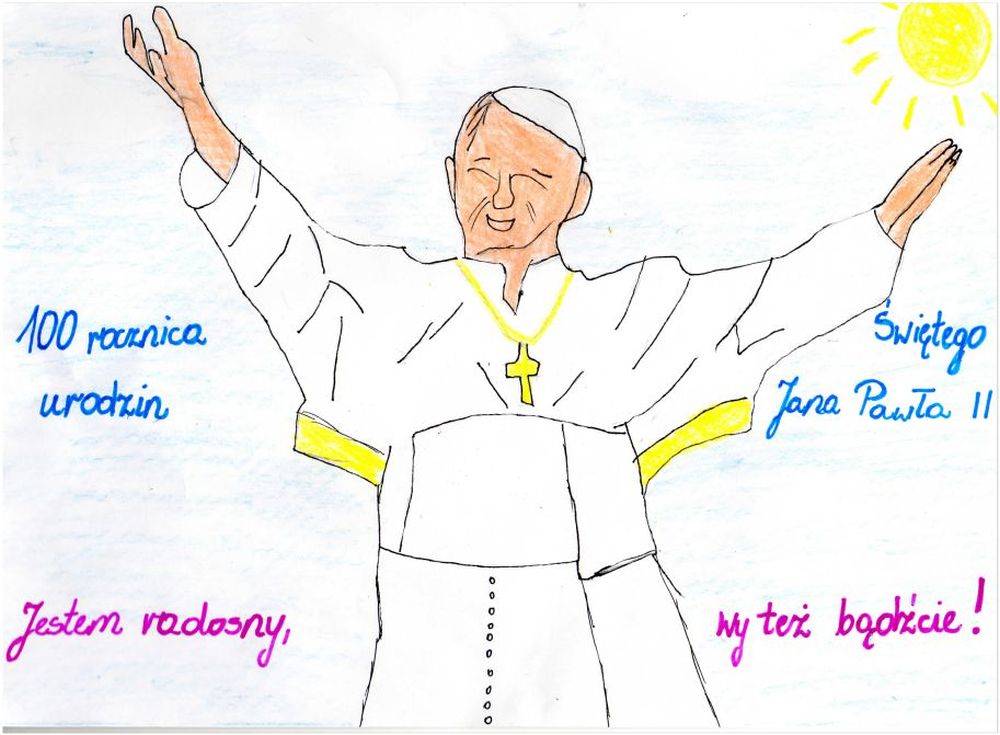 100 rocznica
urodzin
Świętego
Jana Pawła II
Jestem radosny,
wy też bądźcie!